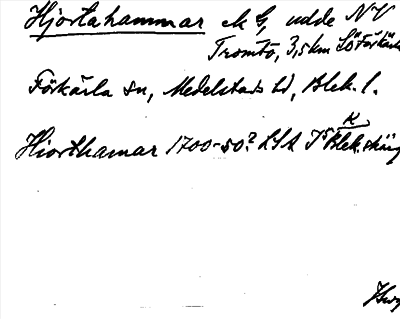 Hjortahammar ek G, udde NV
Tromtö, 3,5 km SÖ Förkärla
Förkärla sn, Medelstads hd, Blek. l.
K
Hiorthamar 1700-50? LSA Blek. skärg